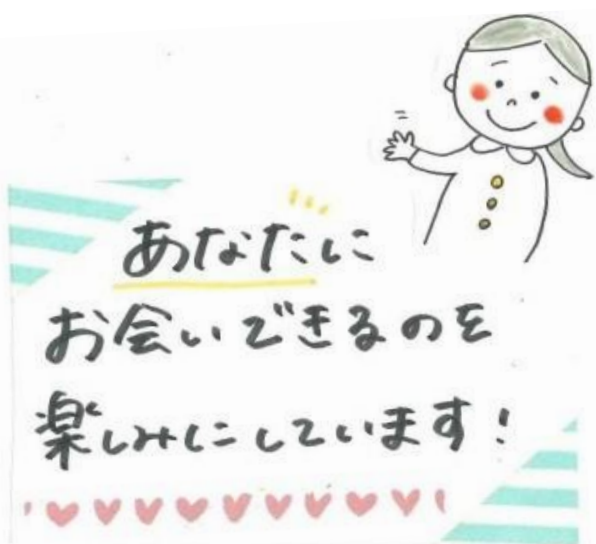 あなたに
お会いできるのを
楽しみにしています!